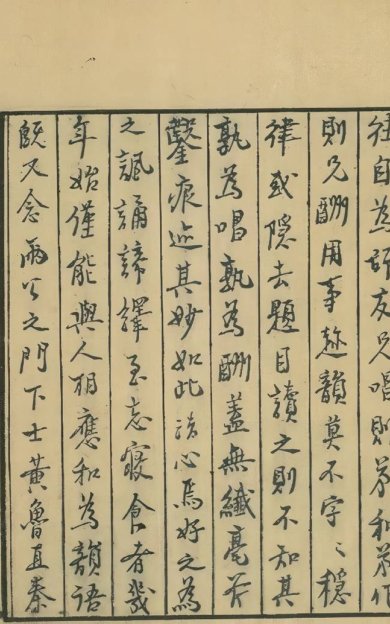 往自為師友兄唱則弟和弟作
則兄酬用事趂韻莫不字〻穩
律或隠去題目讀之則不知其
孰為唱孰為酬蓋無纖毫斧
鑿痕迹其妙如此詰心焉好之為
之諷誦諦繹至忘寢食者幾
年始僅能與人相應和為韻語
既又念兩公之門下士黃魯直秦